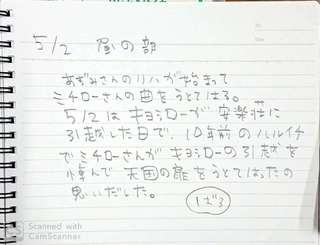 5/2 昼の部
あずみさんのリハが始まって
ミチローさんの曲をうとてはる。
5/2はキヨシローが安楽荘に
引越した日で、10年前のハルイチ
でミチローさんがキヨシローの引越を
悼んで天国の扉をうとてはったの
思いだした。
しばる
Scanned with
CamScanner